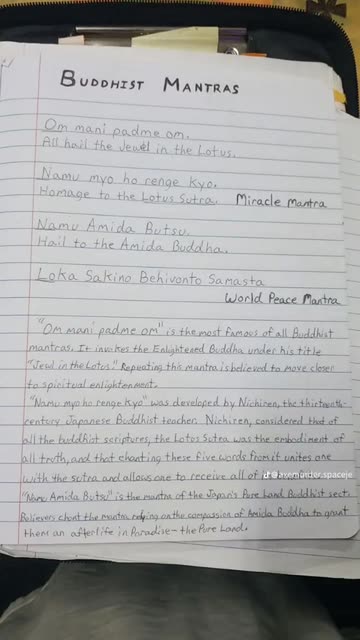 BUDDHIST MANTRAS
Om mani padme om.
All hail the Jewel in the Lotus.
Namu myo ho renge kyo.
Homage to the Lotus Sutra. Miracle Mantra
Namu Amida Butsu.
Hail to the Amida Buddha.
Loka Sakino Behivonto Samasta
World Peace Mantra
"Om mani padme om" is the most famous of all Buddhist
mantras. It invokes the Enlightened Buddha under his title
"Jewel in the Lotus." Repeating this mantra is believed to move closer
to spiritual enlightenment.
"Namu myo ho renge kyo" was developed by Nichiren, the thirteenth-
century Japanese Buddhist teacher. Nichiren, considered that of
all the buddhist scriptures, the Lotus Sutra was the embodiment of
all truth, and that chanting these five words from it unites one
with the sutra and allows one to receive all of
"Namu Amida Butsu" is the mantra of the Japan's Pure Land Buddhist sect.
Believers chant the mantra, relying on the compassion of Amida Buddha to grant
them an afterlife in Paradise - the Pure Land.